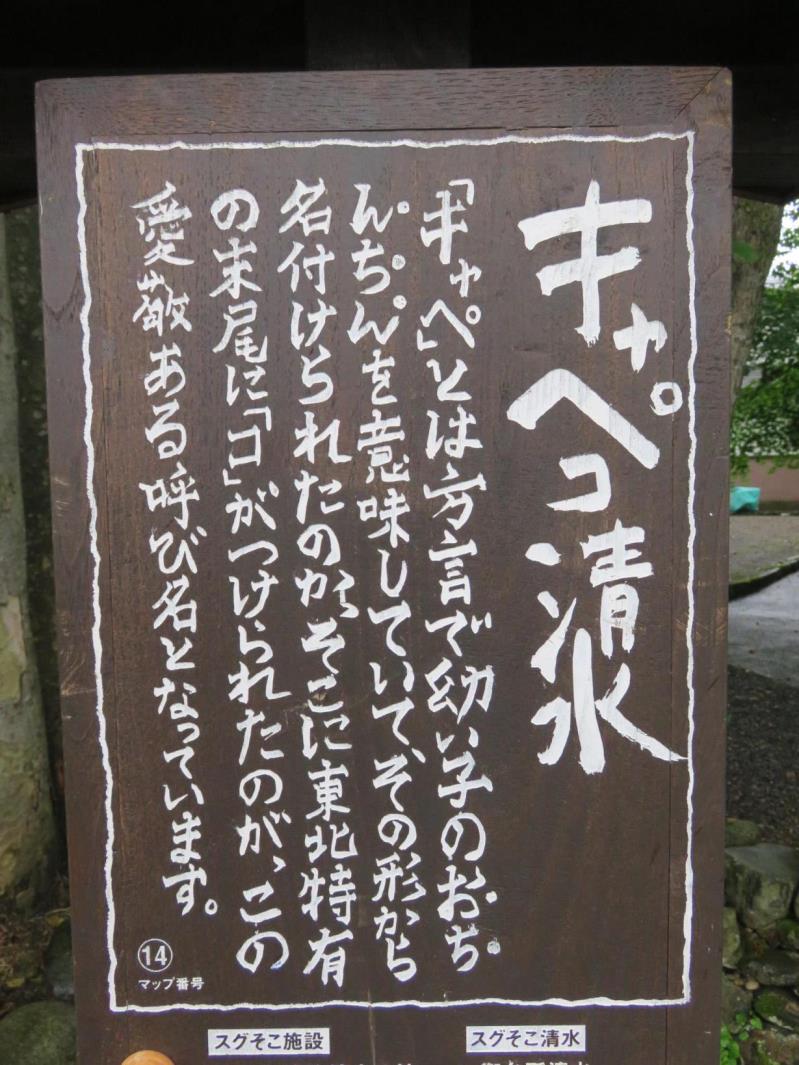 キャペコ清水
「キャペ」とは方言で幼い子のおち
んちんを意味していて、その形から
名付けられたのが、そこに東北特有
の末尾に「コ」がつけられたのが、この
愛敬ある呼び名となっています。
⑭
マップ番号
スグそこ施設
スグそこ清水